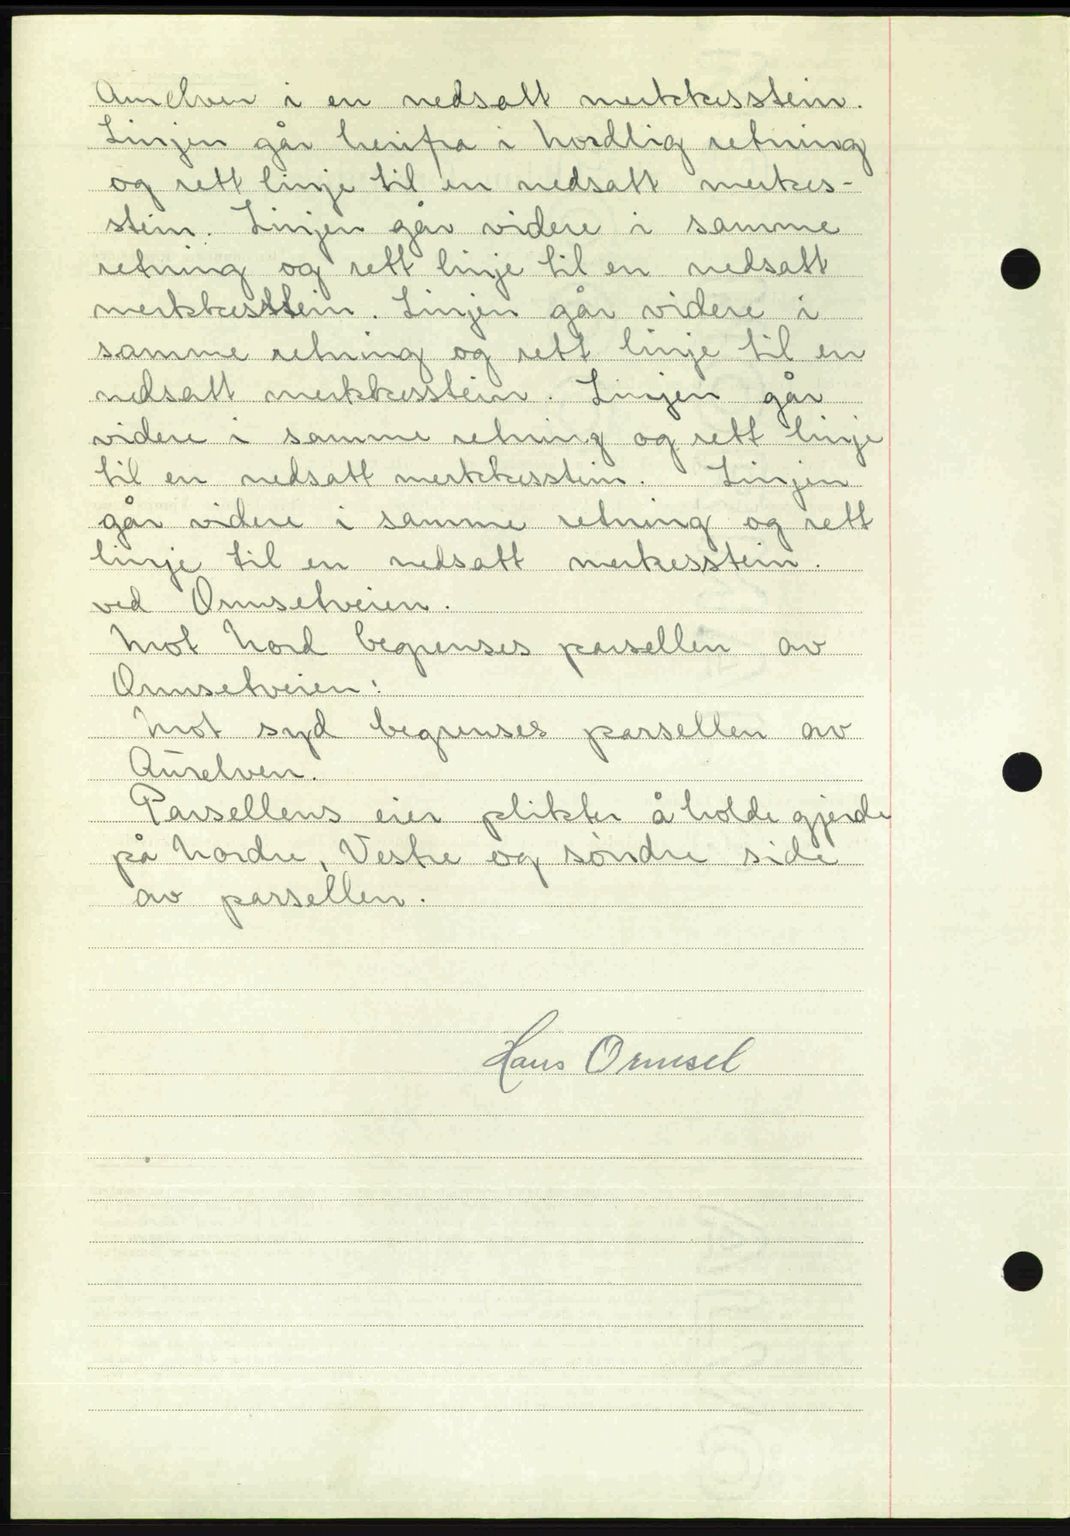 Aurelven i en nedsatt merkkesstein.
Linjen går herifra i Nordlig retning
og rett linje til en nedsatt merkes-
stein. Linjen går videre i samme
retning og rett linje til en nedsatt
merkkesstein. Linjen går videre i
samme retning og rett linje til en
nedsatt merkkesstein. Linjen går
videre i samme retning og rett linje
til en nedsatt merkkesstein. Linjen
går videre i samme retning og rett
linje til en nedsatt merkesstein.
ved Ormsetveien.
Mot Nord begrenses parsellen av
Ormsetveien:
Mot syd begrenses parsellen av
Aurelven.
Parsellens eier plikter å holde gjerde
på Nordre, Vestre og søndre side
av parsellen.
Hans Ormset